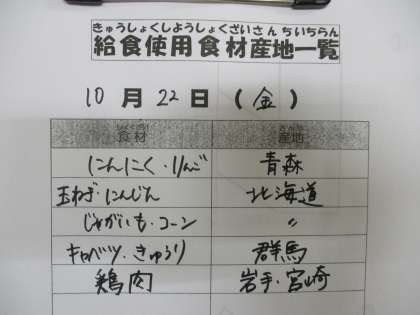 きゅうしょくしようしょくざいさんちいちらん
給食使用食材産地一覧
10月22日(金)
食材 産地
にんにく・りんご 青森
玉ねぎ・にんじん 北海道
じゃがいも・コーン 〃
キャベツ・きゅうり 群馬
鶏肉 岩手・宮崎